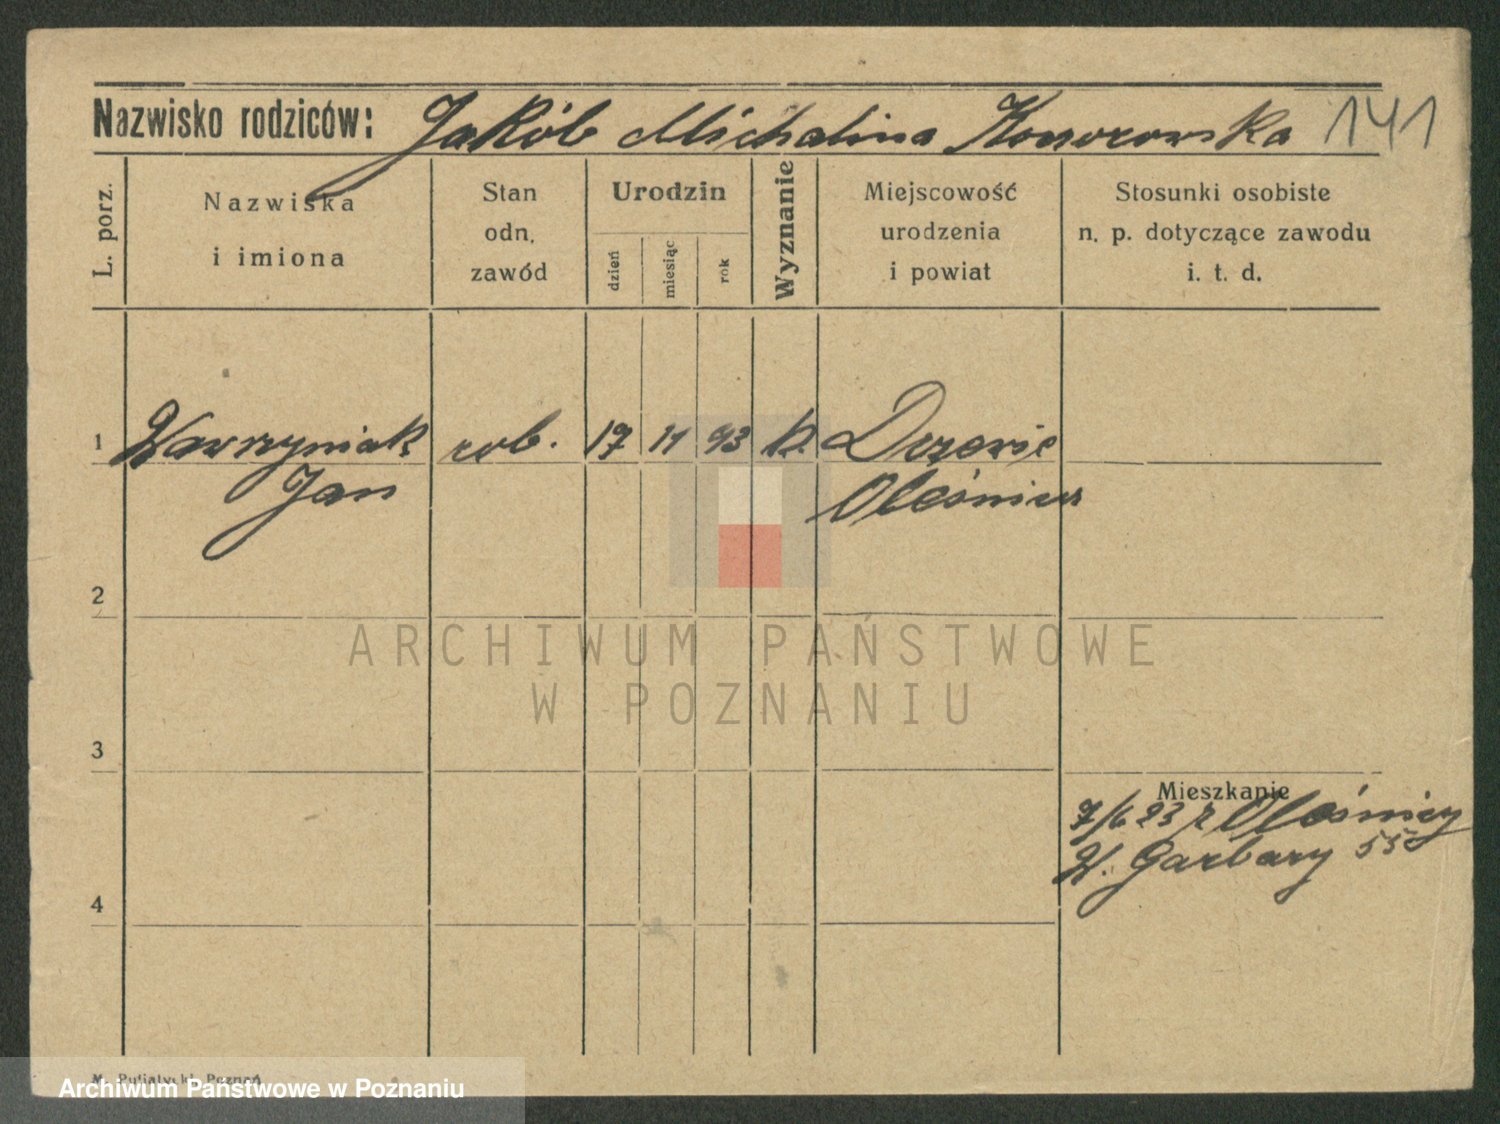 Nazwisko rodziców: Jakób Michalina Konorowska 141
L. porz.
Nazwiska i imiona
Stan odn. zawód
Urodzin
dzień
miesiąc
rok
Wyznanie
Miejscowość urodzenia i powiat
Stosunki osobiste n. p. dotyczące zawodu i. t. d.
1 Wawrzyniak rob. 17 11 93 k.
Jan Oleśnica
2
ARCHIWUM PAŃSTWOWE
W POZNANIU
3
Mieszkanie
7/6 23 z Oleśnicy
W. Garbary 55
4
Poznań
Archiwum Państwowe w Poznaniu